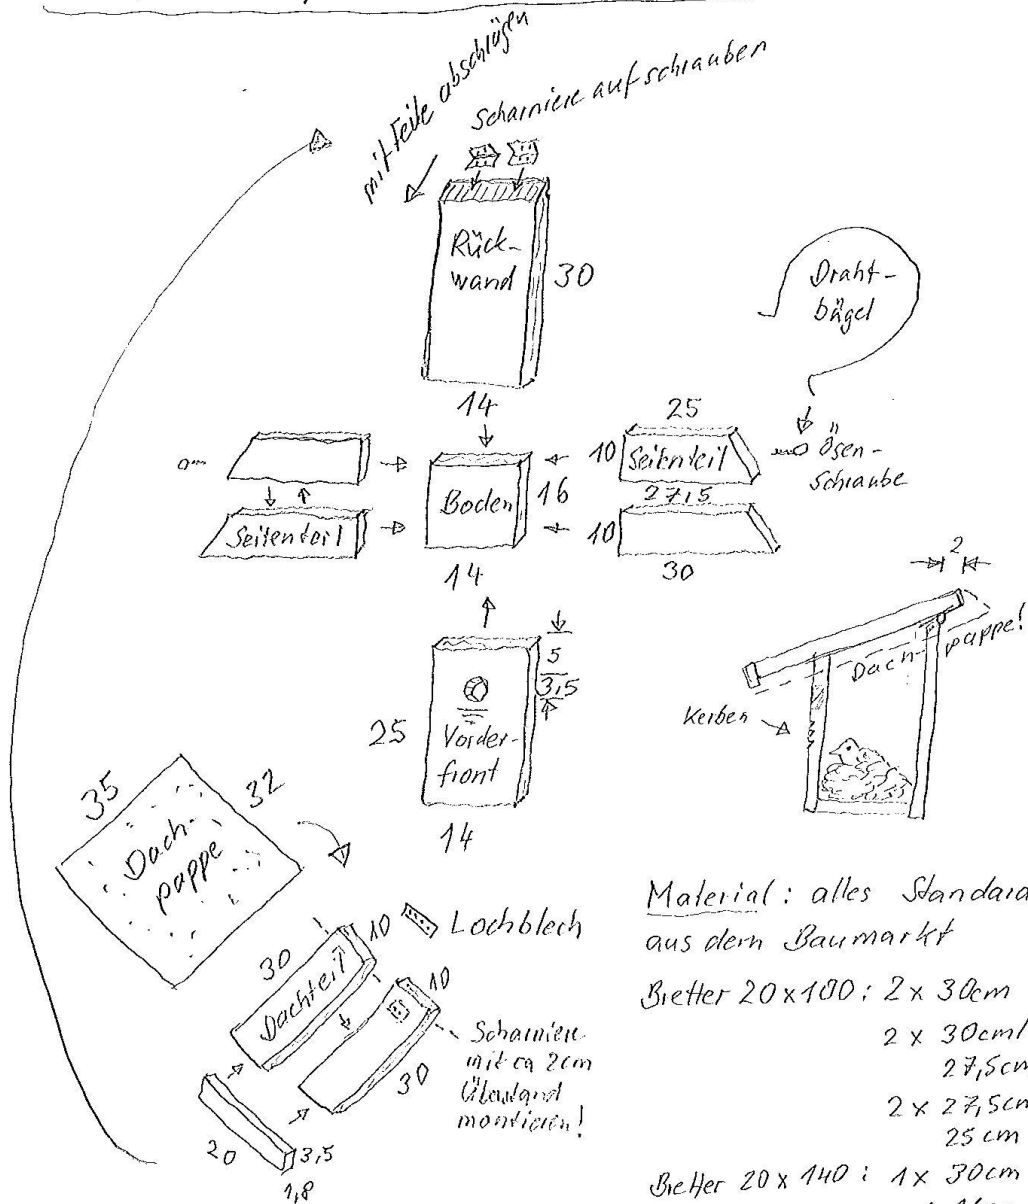 mit Feile abschrägen
Scharniere aufschrauben
Rück-
wand
30
14
Draht-
bügel
Ösen-
Schraube
25
10
Seitenteil
27,5
10
30
Seitenteil
Boden
16
14
5
3,5
25
Vorder-
front
14
2
Dach-pappe!
Kerben
35
32
Dach-
pappe
Lochblech
30
10
Dachteil
10
30
Scharniere
mit ca 2cm
Überstand
montieren!
20
3,5
1,8
Material: alles Standard
aus dem Baumarkt
Bretter 20x100: 2x 30cm
2 x 30cm/
27,5cm
2 x 27,5cm
25 cm
Bretter 20 x 140: 1x 30cm